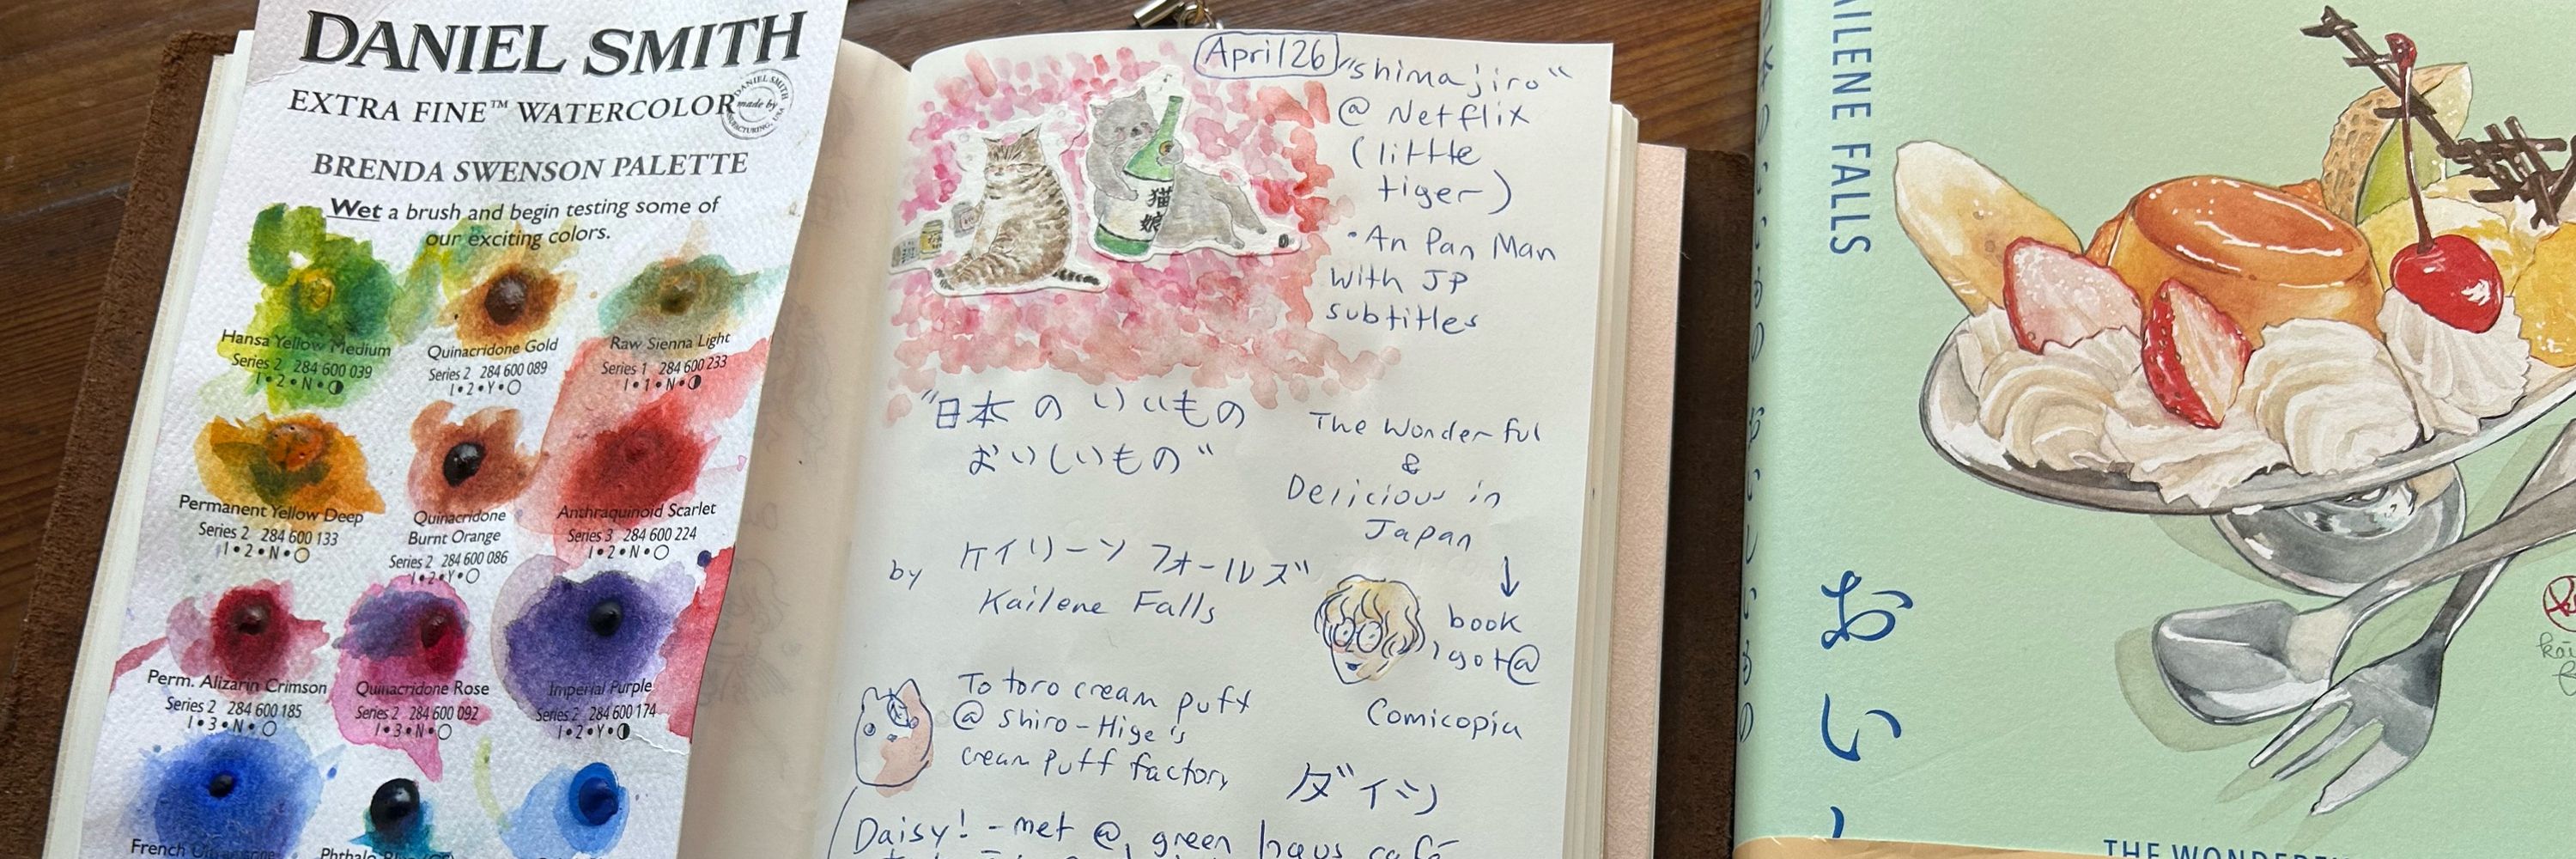 DANIEL SMITH
EXTRA FINE™ WATERCOLOR
DANIEL SMITH
made by
BRENDA SWENSON PALETTE
Wet a brush and begin testing some of
our exciting colors.
Hansa Yellow Medium
Series 2 284 600 039
I • 2 • N • ◑
Quinacridone Gold
Series 2 284 600 089
I • 2 • Y • ○
Raw Sienna Light
Series 1 284 600 233
I • 1 • N • ◑
Permanent Yellow Deep
Series 2 284 600 133
I • 2 • N • ○
Quinacridone
Burnt Orange
Series 2 284 600 086
I • 2 • Y • ○
Anthraquinoid Scarlet
Series 3 284 600 224
I • 2 • N • ○
Perm. Alizarin Crimson
Series 2 284 600 185
I • 3 • N • ○
Quinacridone Rose
Series 2 284 600 092
I • 3 • N • ○
Imperial Purple
Series 2 284 600 174
I • 2 • Y • ◑
French
Phthalo
April 26 "shimajiro"
@ Netflix
(little
tiger)
• An Pan Man
with JP
subtitles
猫
娘
"日本のいいもの
おいしいもの"
The Wonderful
&
Delicious in
Japan
↓
book
I got @
Comicopia
by ケイリーン フォールズ
Kailene Falls
Totoro cream puff
@ Shiro-Hige's
cream puff factory
ダイシ
Daisy! - met @ green haus café
AILENE FALLS
おいし
THE WONDERF